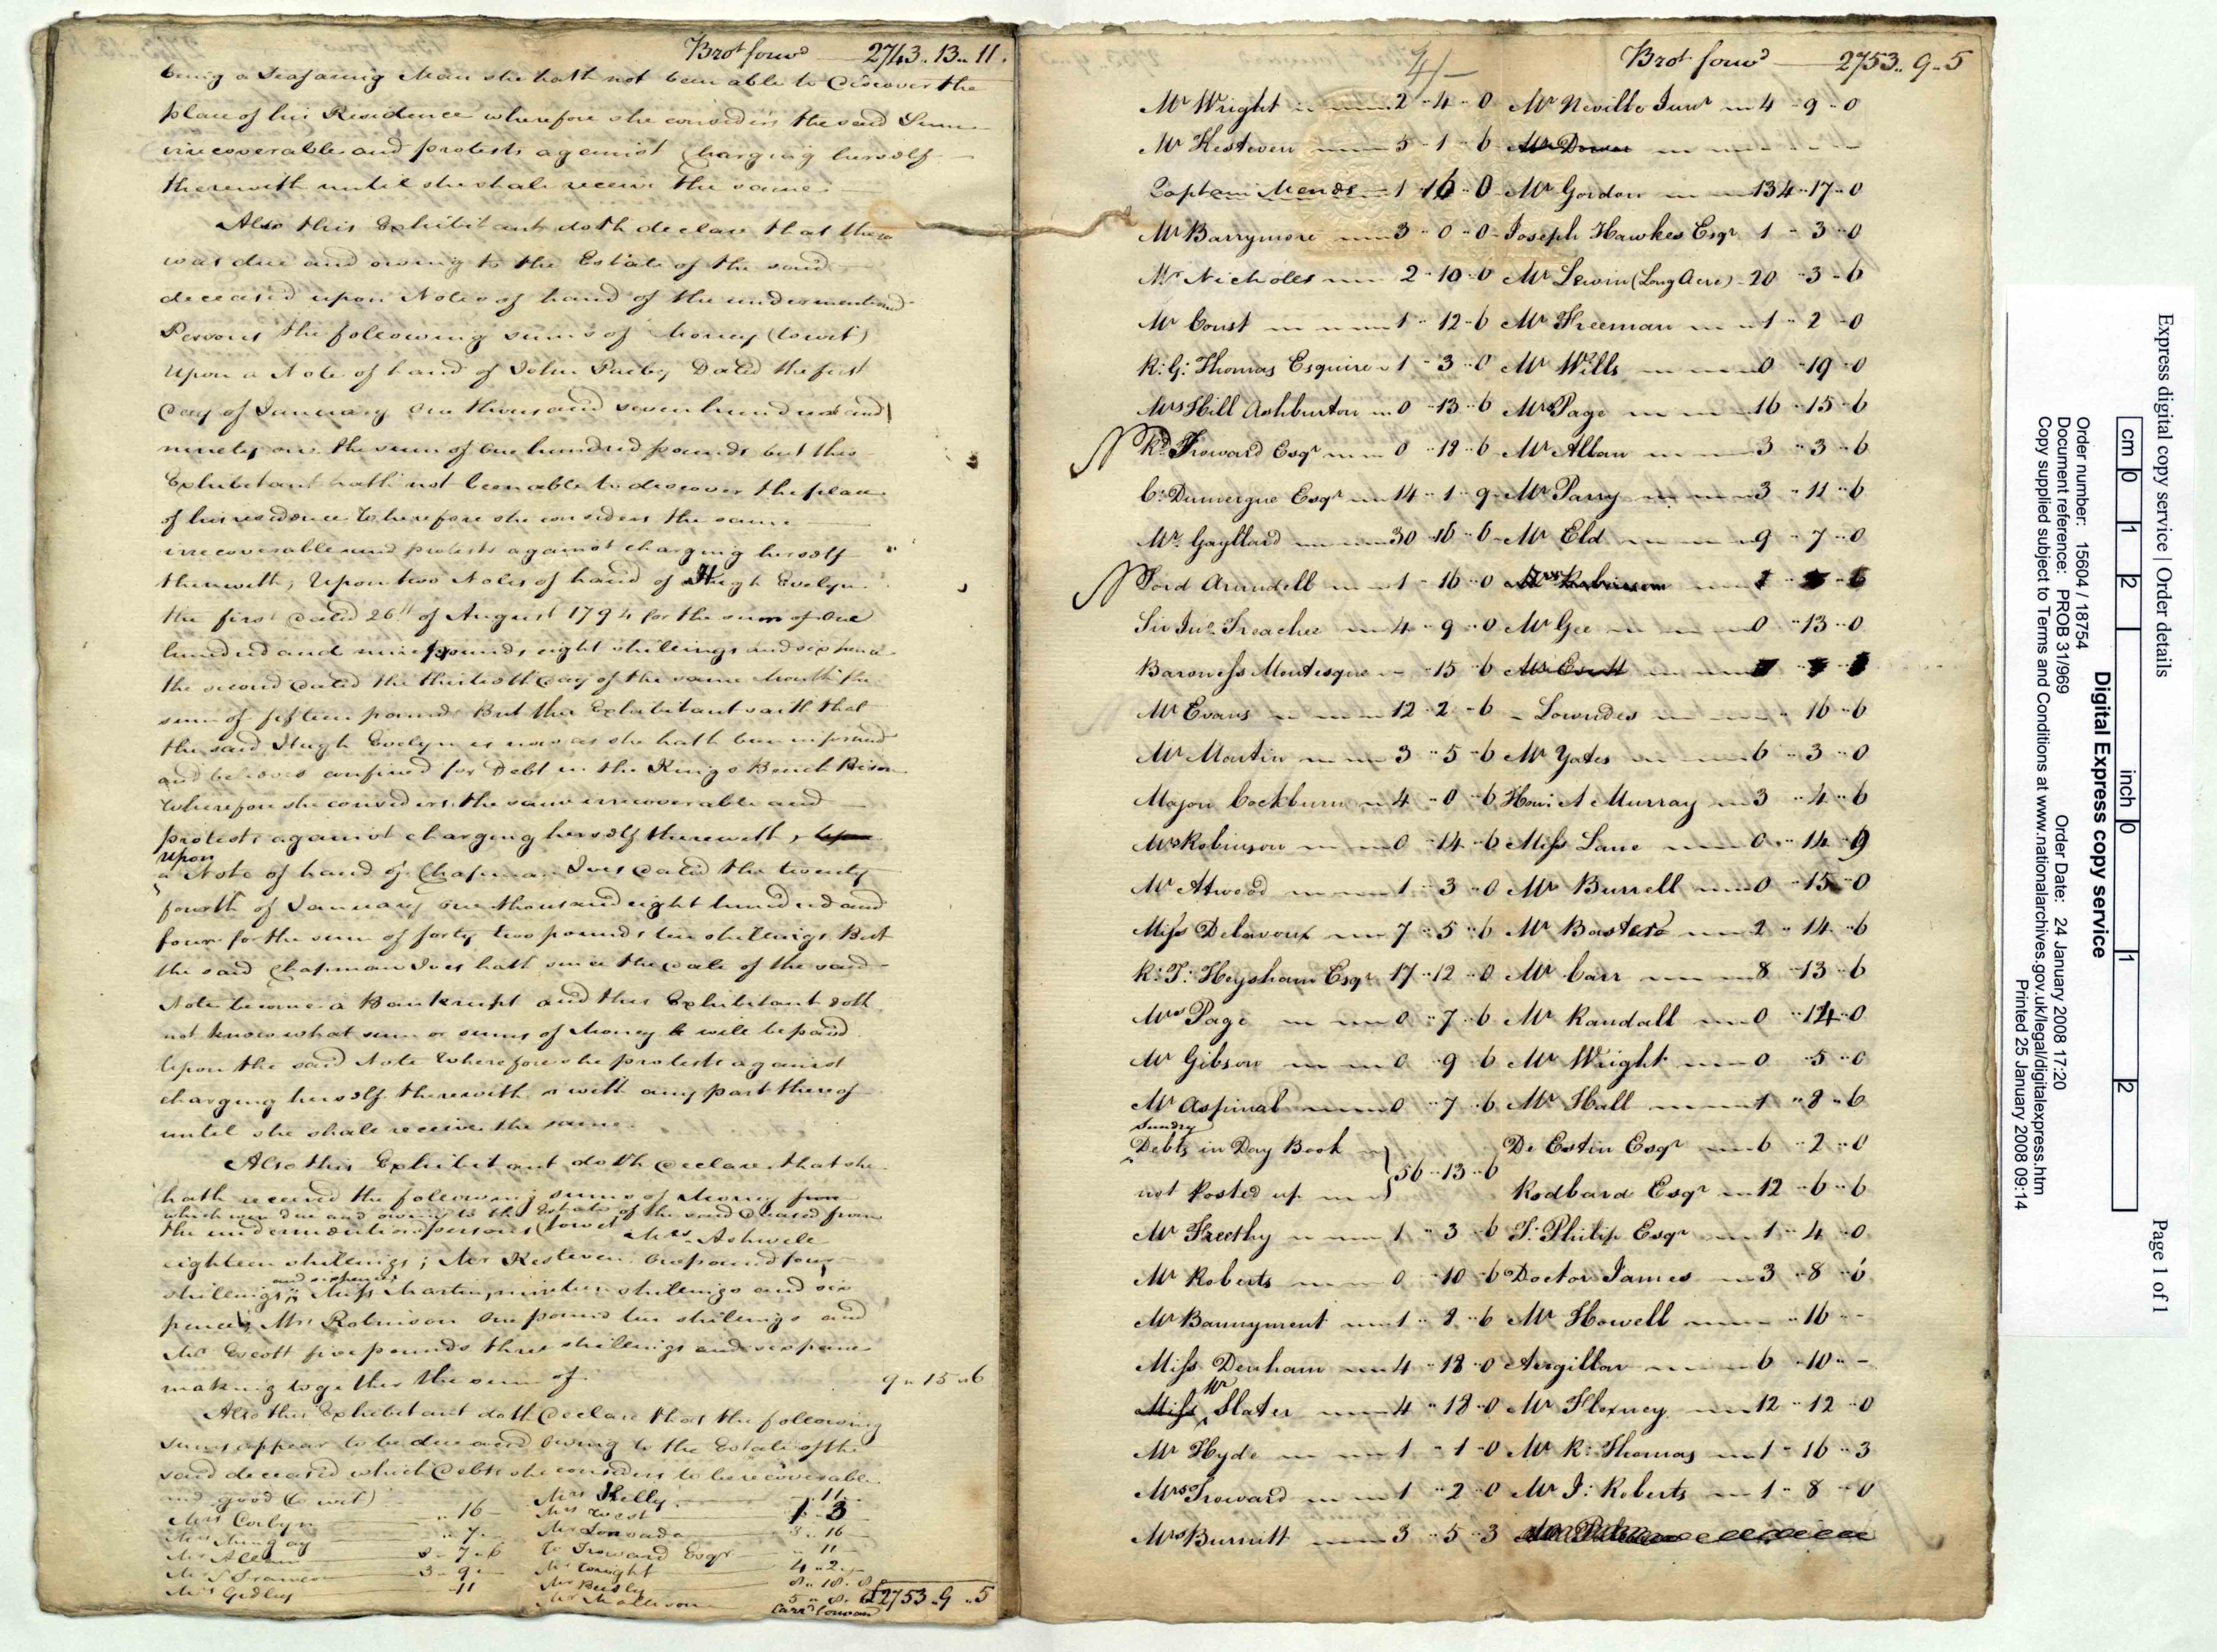 Brot forwd 2743..13..11.
being a Seafaring Man she hath not been able to discover the
place of his Residence wherefore she considers the said Sum
irrecoverable and protests against charging herself
therewith until she shall receive the same.
Also this Exhibitant doth declare that there
was due and owing to the Estate of the said
deceased upon Notes of hand of the undermentiond
Persons the following sums of Money (to wit)
Upon a Note of hand of John Dated the first
day of January One thousand seven hundred and
ninety one the sum of One hundred pounds but this
Exhibitant hath not been able to discover the place
of his residence Wherefore she considers the same
irrecoverable and protests against charging herself
therewith, Upon two Notes of hand of Hugh Evelyn
the first dated 26th of August 1794 for the sum of One
hundred and nine pounds eight shillings and six pence
the second dated the thirtieth day of the same Month for
sum of fifteen pounds But this Exhibitant saith that
the said Hugh Evelyn is now as she hath been informed
and believes confined for Debt in the Kings Bench Prison
Wherefore she considers the same irrecoverable and
protests against charging herself therewith, Upon
upon
a Note of hand of Chapman Ives dated the twenty
fourth of January one thousand eight hundred and
four for the sum of forty two pounds ten shillings But
the said Chapman Ives hath since the date of the said
Note become a Bankrupt and this Exhibitant doth
not know what sum or sums of Money will be paid
Upon the said Note Wherefore she protests against
charging herself therewith or with any part thereof
until she shall receive the same.
Also this Exhibitant doth declare that she
hath received the following sums of Money from
which were due and owing to the Estate of the said deceased from
the undermention'd persons (to wit) Mrs Ashwell
eighteen shillings; Mr Kesteven One pound four
and sixpence
shillings; Miss Martin, nineteen shillings and six
pence; Mrs Robinson One pound ten shillings and
Mr Escott five pounds three shillings and six pence
making together the sum of 9..15..6
Also this Exhibitant doth declare that the following
sums appear to be due and owing to the Estate of the
said deceased which Debts she considers to be recoverable
and good (to wit)
Mrs Corbyn ..16-
Mrs Mingay ..7-
Mr Allan 8-7-6
Mr Francis 3-9-
Mrs Gedley -11
Mrs Shelly -..11..
Mrs West 1..3
Mr Lousada 3..16
T. Troward Esqr ..11-
Mr Wright 4..2..-
Mrs Beesly 8..18..8
Mr Mallison 5..8..6
£2753..9..5
Carrd forward
4/-
Brot forwd 2753..9..5
Mr Wright 2-4-0 Mr Neville Junr 4-9-0
Mr Kesteven 5-1-6 Mr Dower
Captain Mends 1-16-0 Mr Gordon 134-17-0
Mr Barrymore 3-0-0 Joseph Hawkes Esqr 1-3-0
Mr Nicholes 2-10-0 Mr Lewin (Long Acre) 20-3-6
Mr Const 1-12-6 Mr Freeman 1-2-0
R: G: Thomas Esquire 1-3-0 Mr Wills 0-19-0
Mrs Hill Ashburton 0-13-6 Mrs Page 16-15-6
Rd Troward Esqr 0-18-6 Mr Allan 3-3-6
C: Dumergue Esqr 14-1-9 Mr Parry 3-11-6
Mr Gayllard 30-16-6 Mr Eld 9-7-0
Lord Arundell 1-16-0 Mrs Robinson
Sir Jno Treacher 4-9-0 Mr Gee 0-13-0
Baroness Montesque -15-6 Mr Escott
Mr Evans 12-2-6 - Lowndes 16-6
Mr Martin 3-5-6 Mr Yates 6-3-0
Major Cockburn 4-0-6 Hon: A Murray 3-4-6
Mrs Robinson 0-14-6 Miss Lane 0-14-9
Mr Atwood 1-3-0 Mr Burrell 0-15-0
Miss Delavoux 7-5-6 Mr Basterd 2-14-6
R: T: Heysham Esqr 17-12-0 Mr Carr 8-13-6
Mrs Page 0-7-6 Mr Randall 0-14-0
Mr Gibson 0-9-6 Mr Wright 0-5-0
Mr Aspinal 0-7-6 Mr Hall 1-8-6
Sundry
Debts in Day Book De Estin Esqr 6-2-0
not Posted up 56-13-6 Rodbard Esqr 12-6-6
Mr Freethy 1-3-6 T: Philip Esqr 1-4-0
Mr Roberts 0-10-6 Doctor James 3-8-6
Mr Bannyment 1-2-6 Mr Howell -16--
Miss Denham 4-18-0 Aigillon 6-10--
Miss Mr Slater 4-18-0 Mr Flexney 12-12-0
Mr Hyde 1-1-0 Mr R: Thomas 1-16-3
Mrs Troward 1-2-0 Mr J: Roberts 1-8-0
Mrs Burnitt 3-5-3
Express digital copy service | Order details Page 1 of 1
cm 0 1 2 inch 0 1 2
Digital Express copy service
Order number: 15604 / 18754 Order Date: 24 January 2008 17:20
Document reference: PROB 31/969
Copy supplied subject to Terms and Conditions at www.nationalarchives.gov.uk/legal/digitalexpress.htm
Printed 25 January 2008 09:14